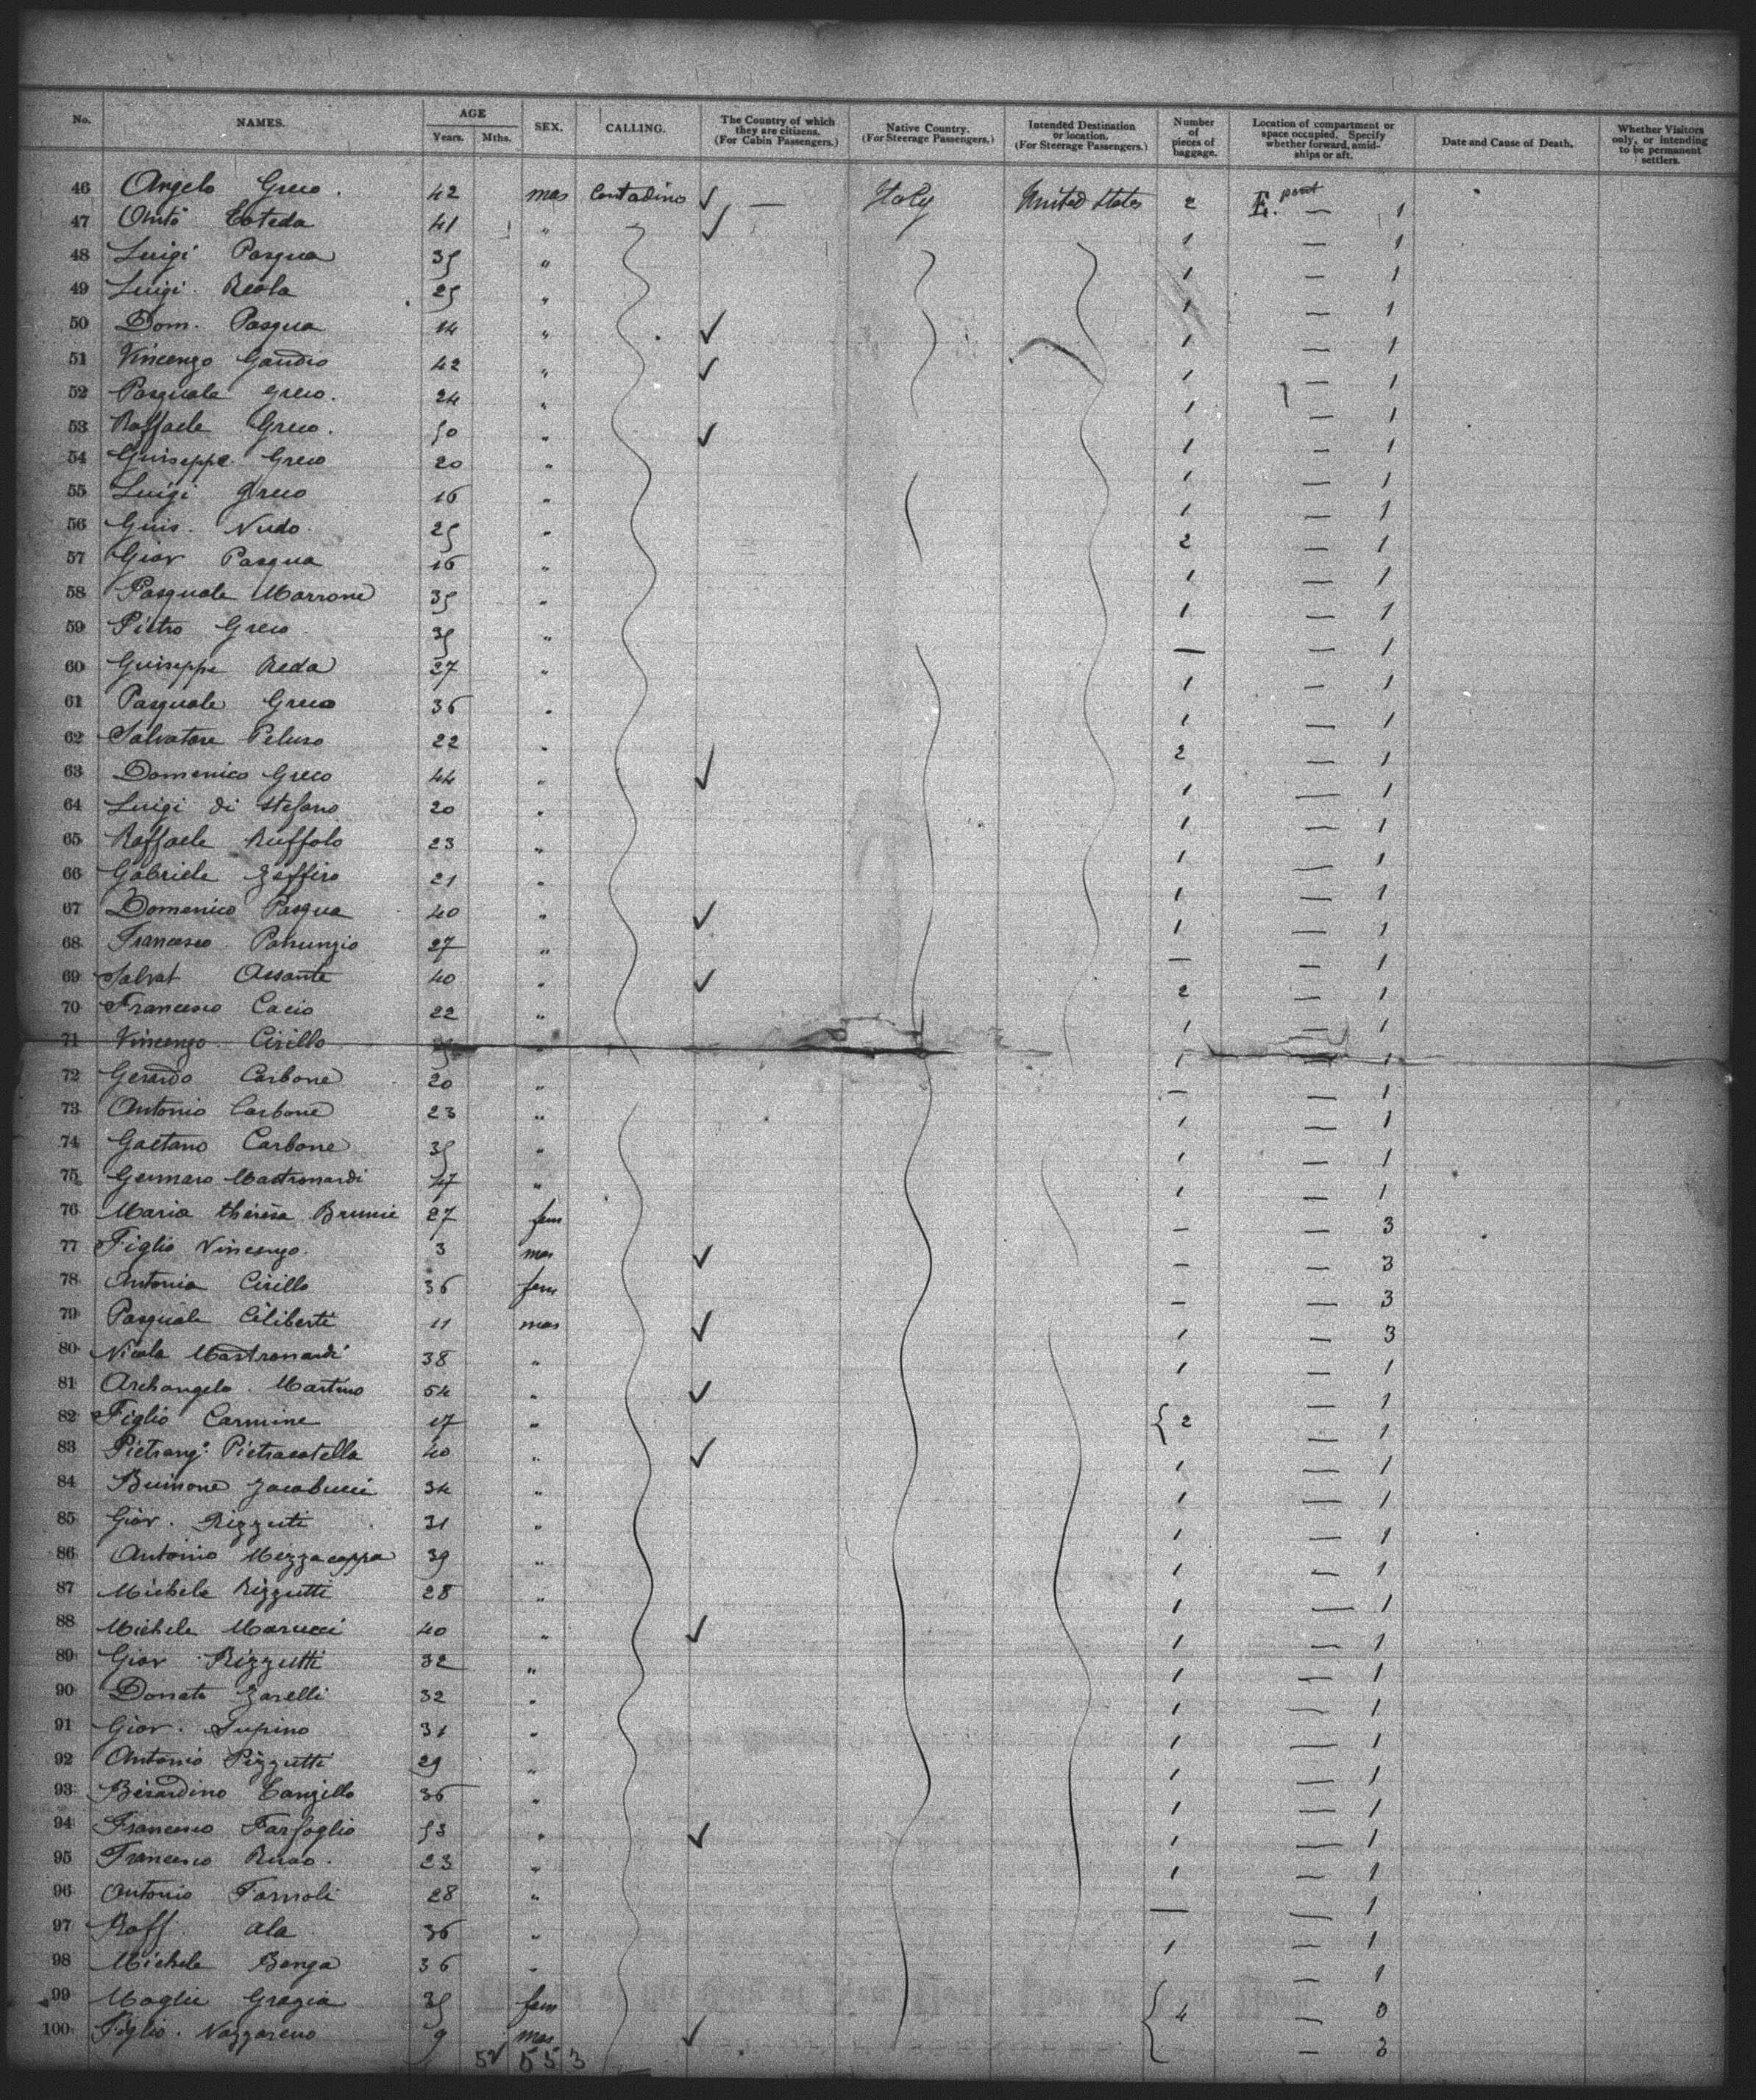 No. NAMES. AGE Years. Mths. SEX. CALLING. The Country of which they are citizens. (For Cabin Passengers.) Native Country. (For Steerage Passengers.) Intended Destination or location. (For Steerage Passengers.) Number of pieces of baggage. Location of compartment or space occupied. Specify whether forward, amid-ships or aft. Date and Cause of Death. Whether Visitors only, or intending to be permanent settlers.
46 Angelo Greco. 42 mas Contadino ✓ — Italy United States 2 E. part — 1
47 41 " ✓ 1 — 1
48 Luigi Pasqua 35 " 1 — 1
49 Luigi 25 " 1 — 1
50 Dom. Pasqua 14 " ✓ 1 — 1
51 Vincenzo Gaudio 42 " ✓ 1 — 1
52 Pasquale Greco. 24 " 1 — 1
53 Raffaele Greco. 50 " ✓ 1 — 1
54 Guiseppe Greco 20 " 1 — 1
55 Luigi Greco 16 " 1 — 1
56 Guis. Nudo 25 " 2 — 1
57 Giov Pasqua 16 " 1 — 1
58 Pasquale Marrone 35 " 1 — 1
59 Pietro Greco 35 " — — 1
60 Guiseppe Reda 27 " 1 — 1
61 Pasquale Greco 36 " 1 — 1
62 Salvatore Peluso 22 " 2 — 1
63 Domenico Greco 44 " ✓ 1 — 1
64 Luigi di Stefano 20 " 1 — 1
65 Raffaele Ruffolo 23 " 1 — 1
66 Gabriele Zaffiro 21 " 1 — 1
67 Domenico Pasqua 40 " ✓ 1 — 1
68 Francesco Panunzio 27 " — — 1
69 Salvat Assante 40 " ✓ 2 — 1
70 Francesco Cacio 22 " 1 — 1
71 Vincenzo Cirillo " 1 — 1
72 Gerardo Carbone 20 " — — 1
73 Antonio Carbone 23 " 1 — 1
74 Gaetano Carbone 35 " 1 — 1
75 Gennaro Mastronardi 47 " 1 — 1
76 Maria 27 fem — — 3
77 Figlio Vincenzo. 3 mas ✓ — — 3
78 Antonia Cirillo 36 fem — — 3
79 Pasquale Ciliberti 11 mas ✓ 1 — 3
80 Nicola Mastronardi 38 " 1 — 1
81 Archangelo. Martino 54 " ✓ — 1
82 Figlio Carmine 17 " { 2 — 1
83 Pietrang. Pietracatella 40 " ✓ 1 — 1
84 Jacobucci 34 " 1 — 1
85 Giov. Rizzuti 31 " 1 — 1
86 Antonio Mezzacappa 39 " 1 — 1
87 Michele Rizzutti 28 " 1 — 1
88 Michele Marucci 40 " ✓ 1 — 1
89 Giov Rizzutti 32 " 1 — 1
90 Donato Zarelli 32 " 1 — 1
91 Giov. Supino 31 " 1 — 1
92 Antonio Pizzutti 29 " 1 — 1
93 Berardino Tanzillo 36 " 1 — 1
94 Francesco Farfoglio 53 " ✓ 1 — 1
95 Francesco 23 " 1 — 1
96 Antonio 28 " — — 1
97 Raff. ala 36 " 1 — 1
98 Michele Benga 36 " — 1
99 Moglie Grazia 35 fem { 4 —
100 Figlio. Nazzareno 9 mas ✓ — 3
52 553